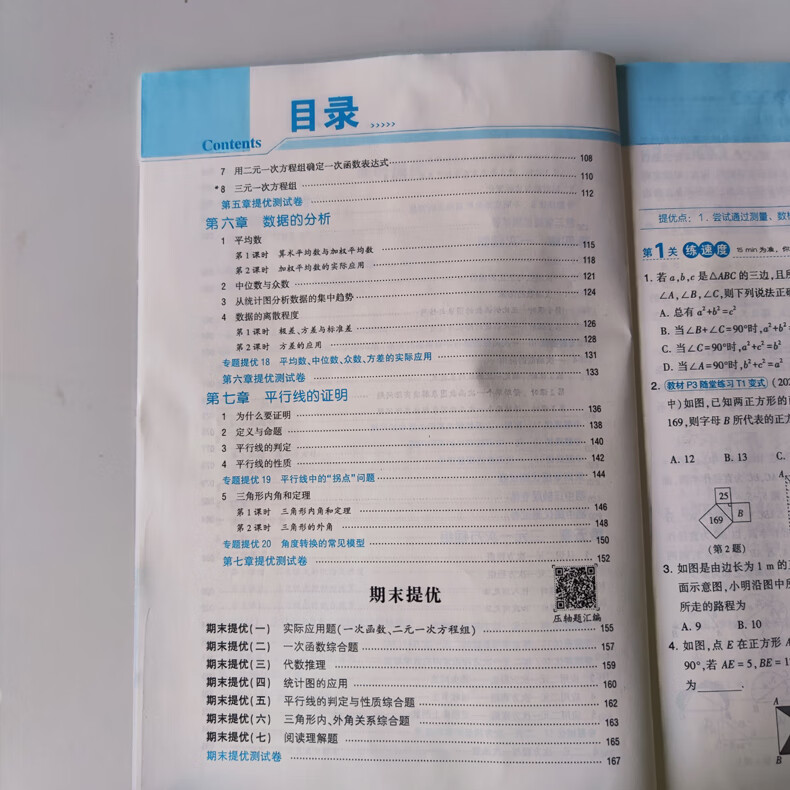 目录
Contents
7 用二元一次方程组确定一次函数表达式 108
*8 三元一次方程组 110
第五章提优测试卷 112
第六章 数据的分析
1 平均数
第1课时 算术平均数与加权平均数 115
第2课时 加权平均数的实际应用 118
2 中位数与众数 121
3 从统计图分析数据的集中趋势 124
4 数据的离散程度
第1课时 极差、方差与标准差 126
第2课时 方差的应用 128
专题提优18 平均数、中位数、众数、方差的实际应用 131
第六章提优测试卷 133
第七章 平行线的证明
1 为什么要证明 136
2 定义与命题 138
3 平行线的判定 140
4 平行线的性质 142
专题提优19 平行线中的“拐点”问题 144
5 三角形内角和定理
第1课时 三角形内角和定理 146
第2课时 三角形的外角 148
专题提优20 角度转换的常见模型 150
第七章提优测试卷 152
期末提优
压轴题汇编
期末提优(一) 实际应用题(一次函数、二元一次方程组) 155
期末提优(二) 一次函数综合题 157
期末提优(三) 代数推理 159
期末提优(四) 统计图的应用 160
期末提优(五) 平行线的判定与性质综合题 162
期末提优(六) 三角形内、外角关系综合题 163
期末提优(七) 阅读理解题 165
期末提优测试卷 167
提优点：1. 尝试通过测量、数
第1关 练速度 15 min为准，你
1. 若a,b,c是△ABC的三边,且
∠A,∠B,∠C,则下列说法正
A. 总有a²+b²=c²
B. 当∠B+∠C=90°时,a²+b²
C. 当∠C=90°时,a²+c²=b²
D. 当∠A=90°时,b²+c²=a²
2. 教材P3随堂练习T1变式 (20
中)如图,已知两正方形的
169,则字母B所代表的正
A. 12 B. 13 C.
25
169
B
A
(第2题)
3. 如图是由边长为1 m的
面示意图,小明沿图中
所走的路程为
A. 9 B. 10
4. 如图,点E在正方形
90°,若AE=5,BE=1
为 .
A
B